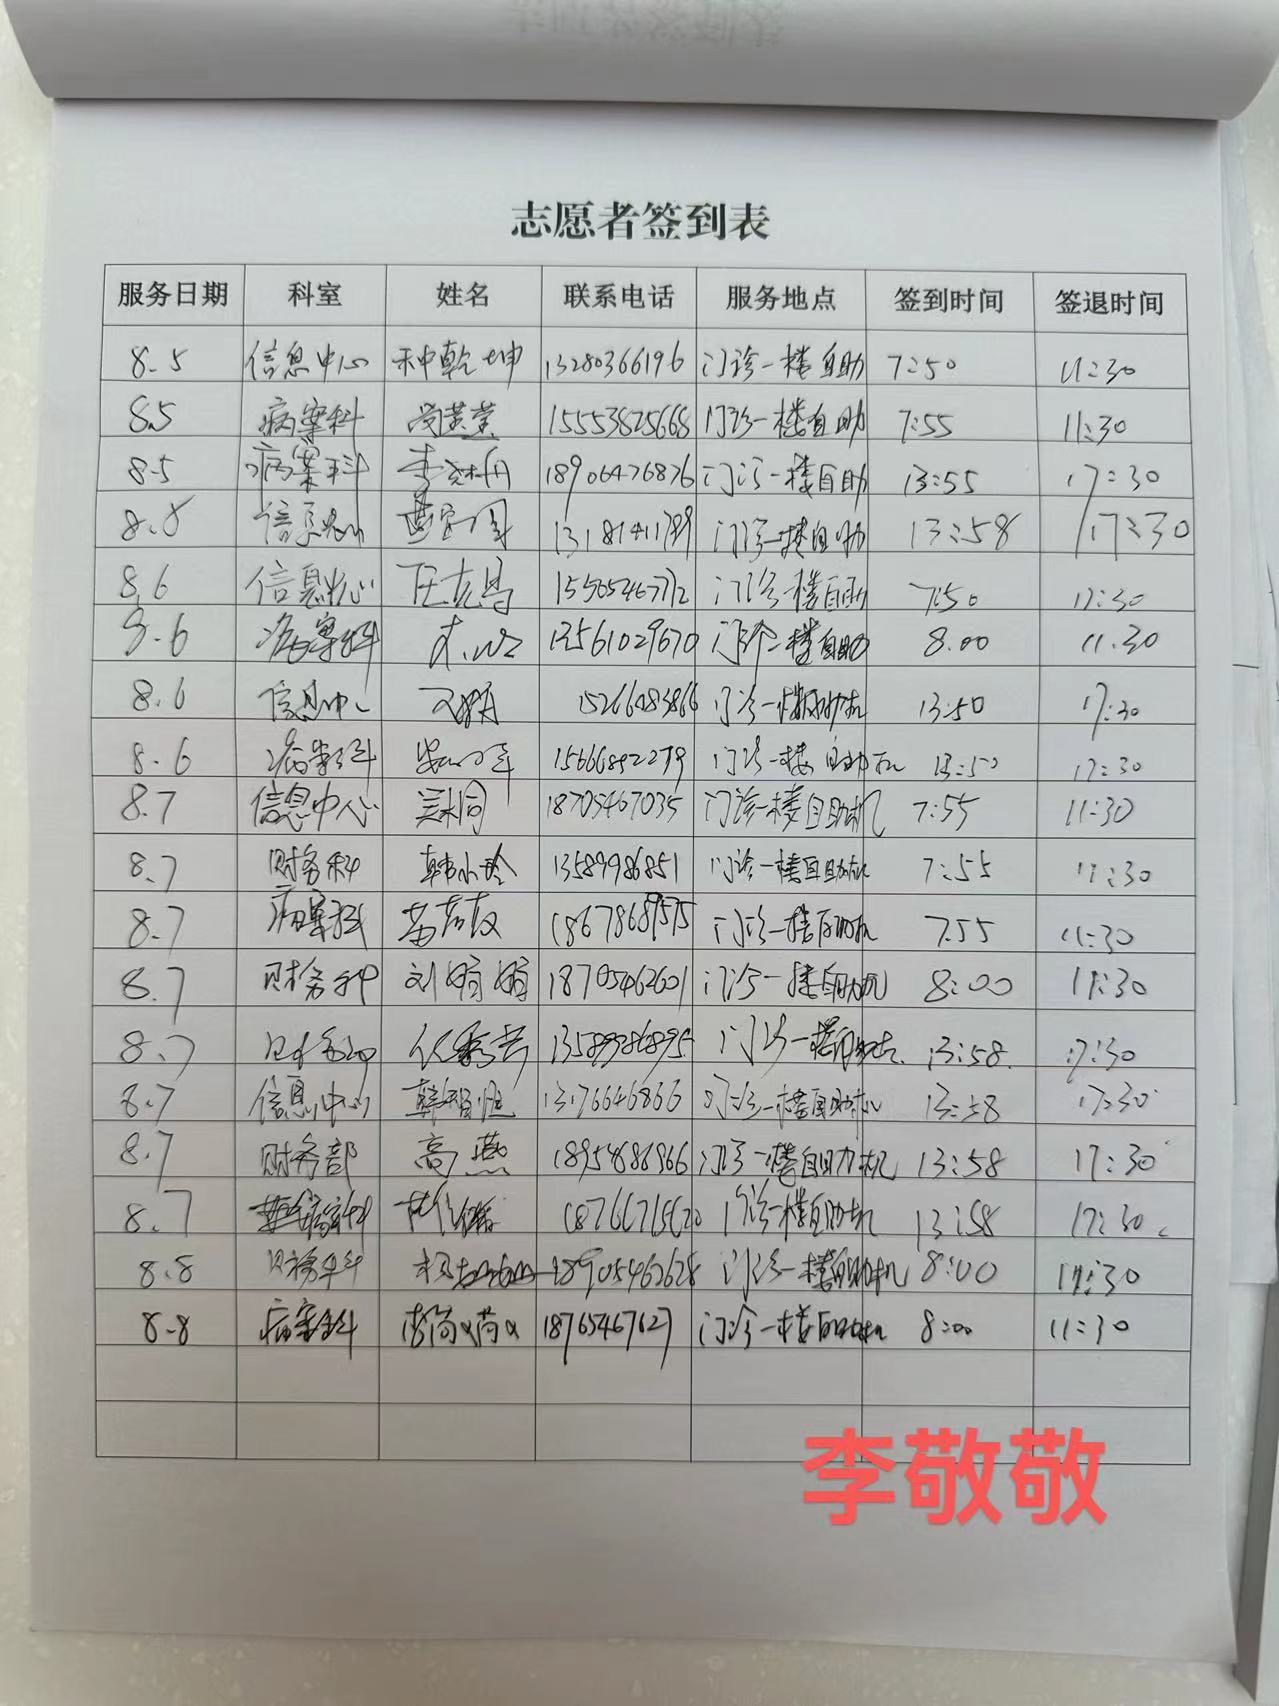 志愿者签到表
服务日期 科室 姓名 联系电话 服务地点 签到时间 签退时间
8.5 信息中心 种乾坤 13280366196 门诊一楼自助 7:50 11:30
8.5 病案科 15553825668 门诊一楼自助 7:55 11:30
8.5 病案科 18906476876 门诊一楼自助 13:55 17:30
8.8 信息中心 门诊一楼自助 13:58 17:30
8.6 信息中心 任克昌 门诊一楼自助 7:50 11:30
8.6 病案科 13561029670 门诊一楼自助 8.00 11.30
8.6 信息中心 门诊一楼自助机 13:50 17:30
8.6 病案科 门诊一楼自助机 13:50 17:30
8.7 信息中心 18705467035 门诊一楼自助机 7:55 11:30
8.7 财务科 韩小玲 13589986851 门诊一楼自助机 7:55 11:30
8.7 病案科 18678687575 门诊一楼自助机 7:55 11:30
8.7 财务科 刘娟娟 18705462601 门诊一楼自助机 8:00 11:30
8.7 门诊一楼自助机 13:58 17:30
8.7 信息中心 13176646866 门诊一楼自助机 13:58 17:30
8.7 财务部 高燕 18954686966 门诊一楼自助机 13:58 17:30
8.7 病案科 门诊一楼自助机 13:58 17:30
8.8 财务科 18905462628 门诊一楼自助机 8:00 11:30
8.8 病案科 18765467627 门诊一楼自助机 8:00 11:30
李敬敬